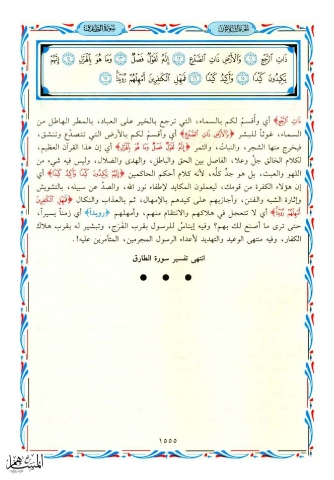 ذَاتِ ٱلرَّجْعِ ۝ وَٱلْأَرْضِ ذَاتِ ٱلصَّدْعِ ۝ إِنَّهُۥ لَقَوْلٌ فَصْلٌ ۝ وَمَا هُوَ بِٱلْهَزْلِ ۝ إِنَّهُمْ
يَكِيدُونَ كَيْدًا ۝ وَأَكِيدُ كَيْدًا ۝ فَمَهِّلِ ٱلْكَٰفِرِينَ أَمْهِلْهُمْ رُوَيْدًۢا ۝
﴿ذَاتِ ٱلرَّجْعِ﴾ أي وأقسمُ لكم بالسماء التي ترجع بالخير على العباد، بالمطر الهاطل من
السماء، غوثاً للبشر ﴿وَٱلْأَرْضِ ذَاتِ ٱلصَّدْعِ﴾ أي وأقسمُ لكم بالأرض التي تتصدَّع وتنشق،
فيخرج منها الشجر، والنباتُ، والثمر ﴿إِنَّهُۥ لَقَوْلٌ فَصْلٌ وَمَا هُوَ بِٱلْهَزْلِ﴾ أي إن هذا القرآن العظيم،
لكلام الخالق جلَّ وعلا، الفاصل بين الحق والباطل، والهدى والضلال، وليس فيه شيء من
اللهو والعبث، بل هو جدٌّ كلُّه، لأنه كلام أحكم الحاكمين ﴿إِنَّهُمْ يَكِيدُونَ كَيْدًا وَأَكِيدُ كَيْدًا﴾ أي
إن هؤلاء الكفرة من قومك، ليعملون المكايد لإطفاء نور الله، والصدِّ عن سبيله، بالتشويش
وإثارة الشبه والفتن، وأجازيهم على كيدهم بالإمهال، ثم بالعذاب والنكال ﴿فَمَهِّلِ ٱلْكَٰفِرِينَ
أَمْهِلْهُمْ رُوَيْدًۢا﴾ أي لا تتعجل في هلاكهم والانتقام منهم، وأمهلهم ﴿رويداً﴾ أي زمناً يسيراً،
حتى ترى ما أصنع لك بهم؟ وفيه إيناسٌ للرسول بقرب الفَرَج، وتبشير له بقرب هلاك
الكفار، وفيه منتهى الوعيد والتهديد لأعداء الرسول المجرمين، المتآمرين عليه!.
انتهى تفسير سورة الطارق
١٥٥٥